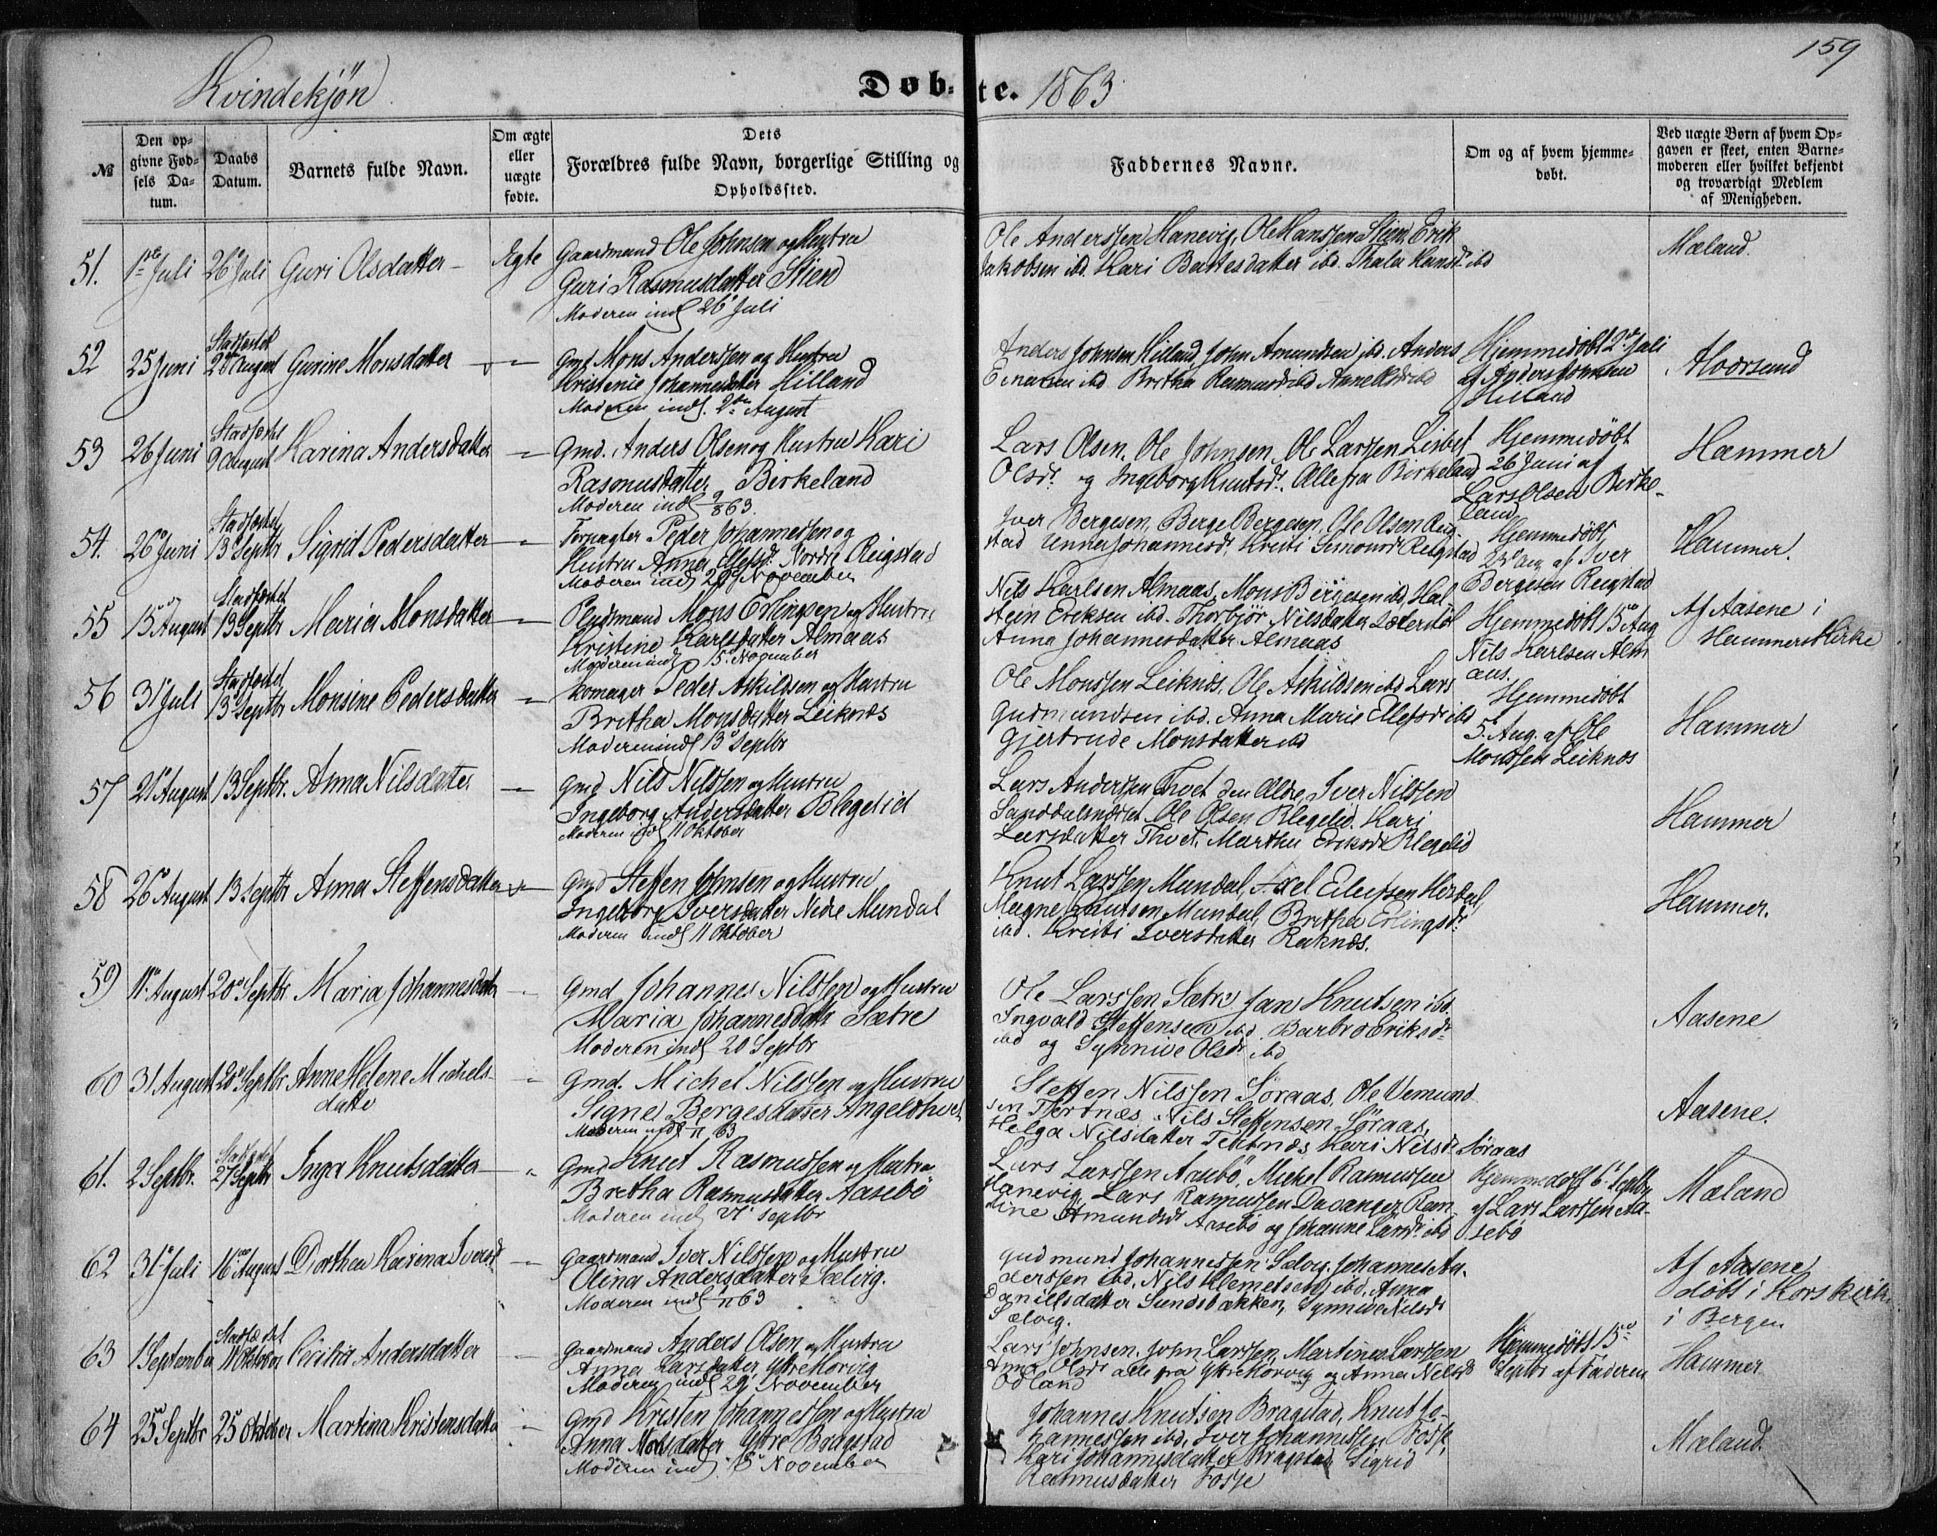 159
Kvindekjøn
Døbte. 1863
№
Den opgivne Fødsels Datum.
Daabs Datum.
Barnets fulde Navn.
Om ægte eller uægte fødte.
Dets Forældres fulde Navn, borgerlige Stilling og Opholdssted.
Faddernes Navne.
Om og af hvem hjemmedøbt.
Ved uægte Børn af hvem Opgaven er skeet, enten Barnemoderen eller hvilket bekjendt og troværdigt Medlem af Menigheden.
51. 1ste Juli 26 Juli Guri Olsdatter Ægte
Gaardmand Ole Johnsen og Hustru
Guri Rasmusdatter Stien
Moderen indl 26 Juli
Ole Anderssen Hanevig, Ole Hanssen Stien, Erik
Jakobsen ibd. Kari ibd. ibd
Mæland
52 25 Juni Stadfæstet 2den August Gunine Monsdatter
Gmd Mons Anderssen og Hustru
Kristenie Johannesdatter Hilland
Moderen indl. 2den August
Anders Johnsen Hilland, John Amundsen ibd. Anders
ibd Britha ibd
Hjemmedøbt 2den Juli
af Anders Johnsen
Hilland
Alværsund
53 26 Juni Stadfæstet 9 August Karina Andersdatter
Gmd. Anders Olsen og Hustru Kari
Rasmusdatter Birkeland
Moderen indl 9/8 63.
Lars Olsen, Ole Johnsen, Ole Larssen Lisbet
Olsdr. og Ingeborg Knutsdr. Alle fra Birkeland
Hjemmedøbt
26 Juni af
Lars Olsen Birke-
land
Hammer
54. 26 Juni Stadfæstet 13 Septbr Sigrid Pedersdatter
Forpagter Peder Johannessen og
Hustru Anna Nordre Reigstad
Moderen indl 29 November
Iver Bergesen, Berge Bergesen, Ole Olsen Reig-
stad Johannesdr. Kristi Simonsdr Reigstad
Hjemmedøbt
af Iver
Bergesen Reigstad
Hammer.
55 15 August Stadfæstet 13 Septbr Maria Monsdatter
Mons Erlingsen og Hustru
Kristine Karlsdatter Almaas
Moderen indl 15 November
Nils Karlsen Almaas, Mons ibd, Hal-
stein Eriksen ibd. Thorbjør Nilsdatter
Anna Johannesdatter Almaas
Hjemmedøbt 15 Aug
Nils Karlsen Alm
aas.
Af Aasene i
Hammers Kirke
56 31 Juli Stadfæstet 13 Septbr Monsine Pedersdatter
Peder Askildsen og Hustru
Britha Monsdatter Leiknæs
Moderen indl 13 Septbr
Ole Monssen Leiknæs, Ole Askildsen ibd Lars
Gudmundsen ibd. Anna Marie ibd
Gjertrude Monsdatter ibd
Hjemmedøbt
5. Aug. af Ole
Monssen Leiknæs
Hammer
57 21 August 13 Septbr. Anna Nilsdatter
Gmd Nils Nilssen og Hustru
Ingeborg Andersdatter
Moderen indl 11 Oktober
Lars Anderssen Thvet den Ældre, Iver Nilssen
Ole Olsen Kari
Larsdatter Thvet, Martha
Hammer
58 26 August 13 Septbr Anna Steffensdatter
Gmd Steffen Johnsen og Hustru
Ingeborg Iversdatter Nedre Mundal
Moderen indl 11 Oktober
Knut Larssen Mundal, Axel
Magne Knutsen Mundal, Britha Erlingsdr.
ibd. Kristi Iversdatter Raknæs.
Hammer.
59 11 August 20 Septbr. Maria Johannesdatter
Gmd Johannes Nilssen og Hustru
Maria Johannesdatter Sætre
Moderen indl 20 Septbr
Ole Larssen Sætre Jan Knutsen ibd.
Ingvald Steffensen ibd. Barbro Eriksdr
ibd og Synnive Olsdr ibd
Aasene
60 31 August 20 Septbr Anne Helene Michels-
datte
Gmd. Michel Nilssen og Hustru
Signe Bergesdatter
Steffen Nilssen Søraas, Ole Vemund-
sen Tertnæs, Nils Steffensen Søraas,
Helga Nilsdatter Tertnæs, Kari Nilsdr Søraas
Aasene.
61. 2 Septbr. 27 Septbr Inga Knutsdatter
Gmd Knut Rasmussen og Hustru
Bretha Rasmusdatter Aasebø
Moderen indl 27 Septbr
Lars Larssen Aasebø, Michel Rasmussen
Hanevig, Lars Rasmussen Davanger,
Amundsdr Aasebø og Johanne Larsdr ibd
Hjemmedøbt 6 Septbr
af Lars Larssen Aa-
sebø
Mæland
62 31 Juli 16 August Dorthea Karina Iversdr
Gaardmand Iver Nilssen og Hustru
Olina Andersdatter Sælvig.
Moderen indl 63
Gudmund Johannessen Sælvig, Johannes An-
derssen ibd, Nils Klemetsen ibd, Anna
Danielsdatter Synnive Nilsdr
Sælvig.
Af Aasene,
døbt i Korskirk
i Bergen
63 1 September Stadfæstet 11 Oktober Cecilia Andersdatter
Gaardmand Anders Olsen og Hustru
Anna Larsdatter Ytre
Moderen indl 29 November
Lars Johnsen, John Larssen, Martines Larssen
Anna Olsdr alle fra Ytre og Anna Nilsdr
Odland
Hjemmedøbt 15
Septbr af Faderen
Hammer
64 25 Septbr 25 Oktober Martina Kristensdatter
Gmd Kristen Johannessen og Hustru
Anna Monsdatter Ytre Bragstad
Moderen indl. November
Johannes Knutsen Bragstad, Knut Jo-
hannessen ibd, Iver Johannessen Fosse
Kari Johannesdatter Bragstad Sigrid
Rasmusdatter Fosse
Mæland.